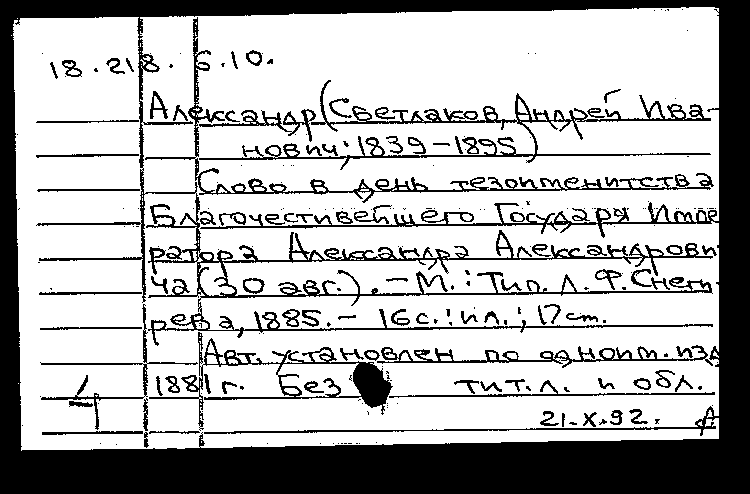 18.218.6.10.
Александр (Светлаков, Андрей Ива-
нович; 1839-1895)
Слово в день тезоименитства
Благочестивейшего Государя Импе
ратора Александра Александрови
ча (30 авг.). - М.: Тип. Л. Ф. Снеги-
рева, 1885. - 16 с.: ил.; 17 см.
Авт. установлен по одноим. изд
1881 г. Без тит. л. и обл.
4
21.X.92. А